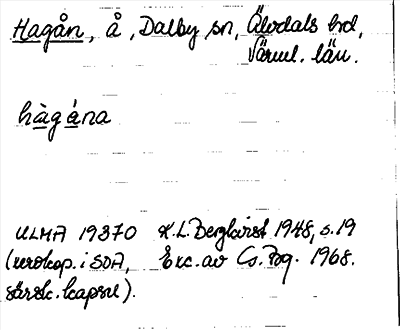 Hagån, å, Dalby sn, Älvdals hd,
Värml. län.
hàgána
ULMA 19370 K.L. Bergkvist 1948, s. 19
(verskap. i SOA, Exc. av Cs. 1968.
särsk. kapsel).